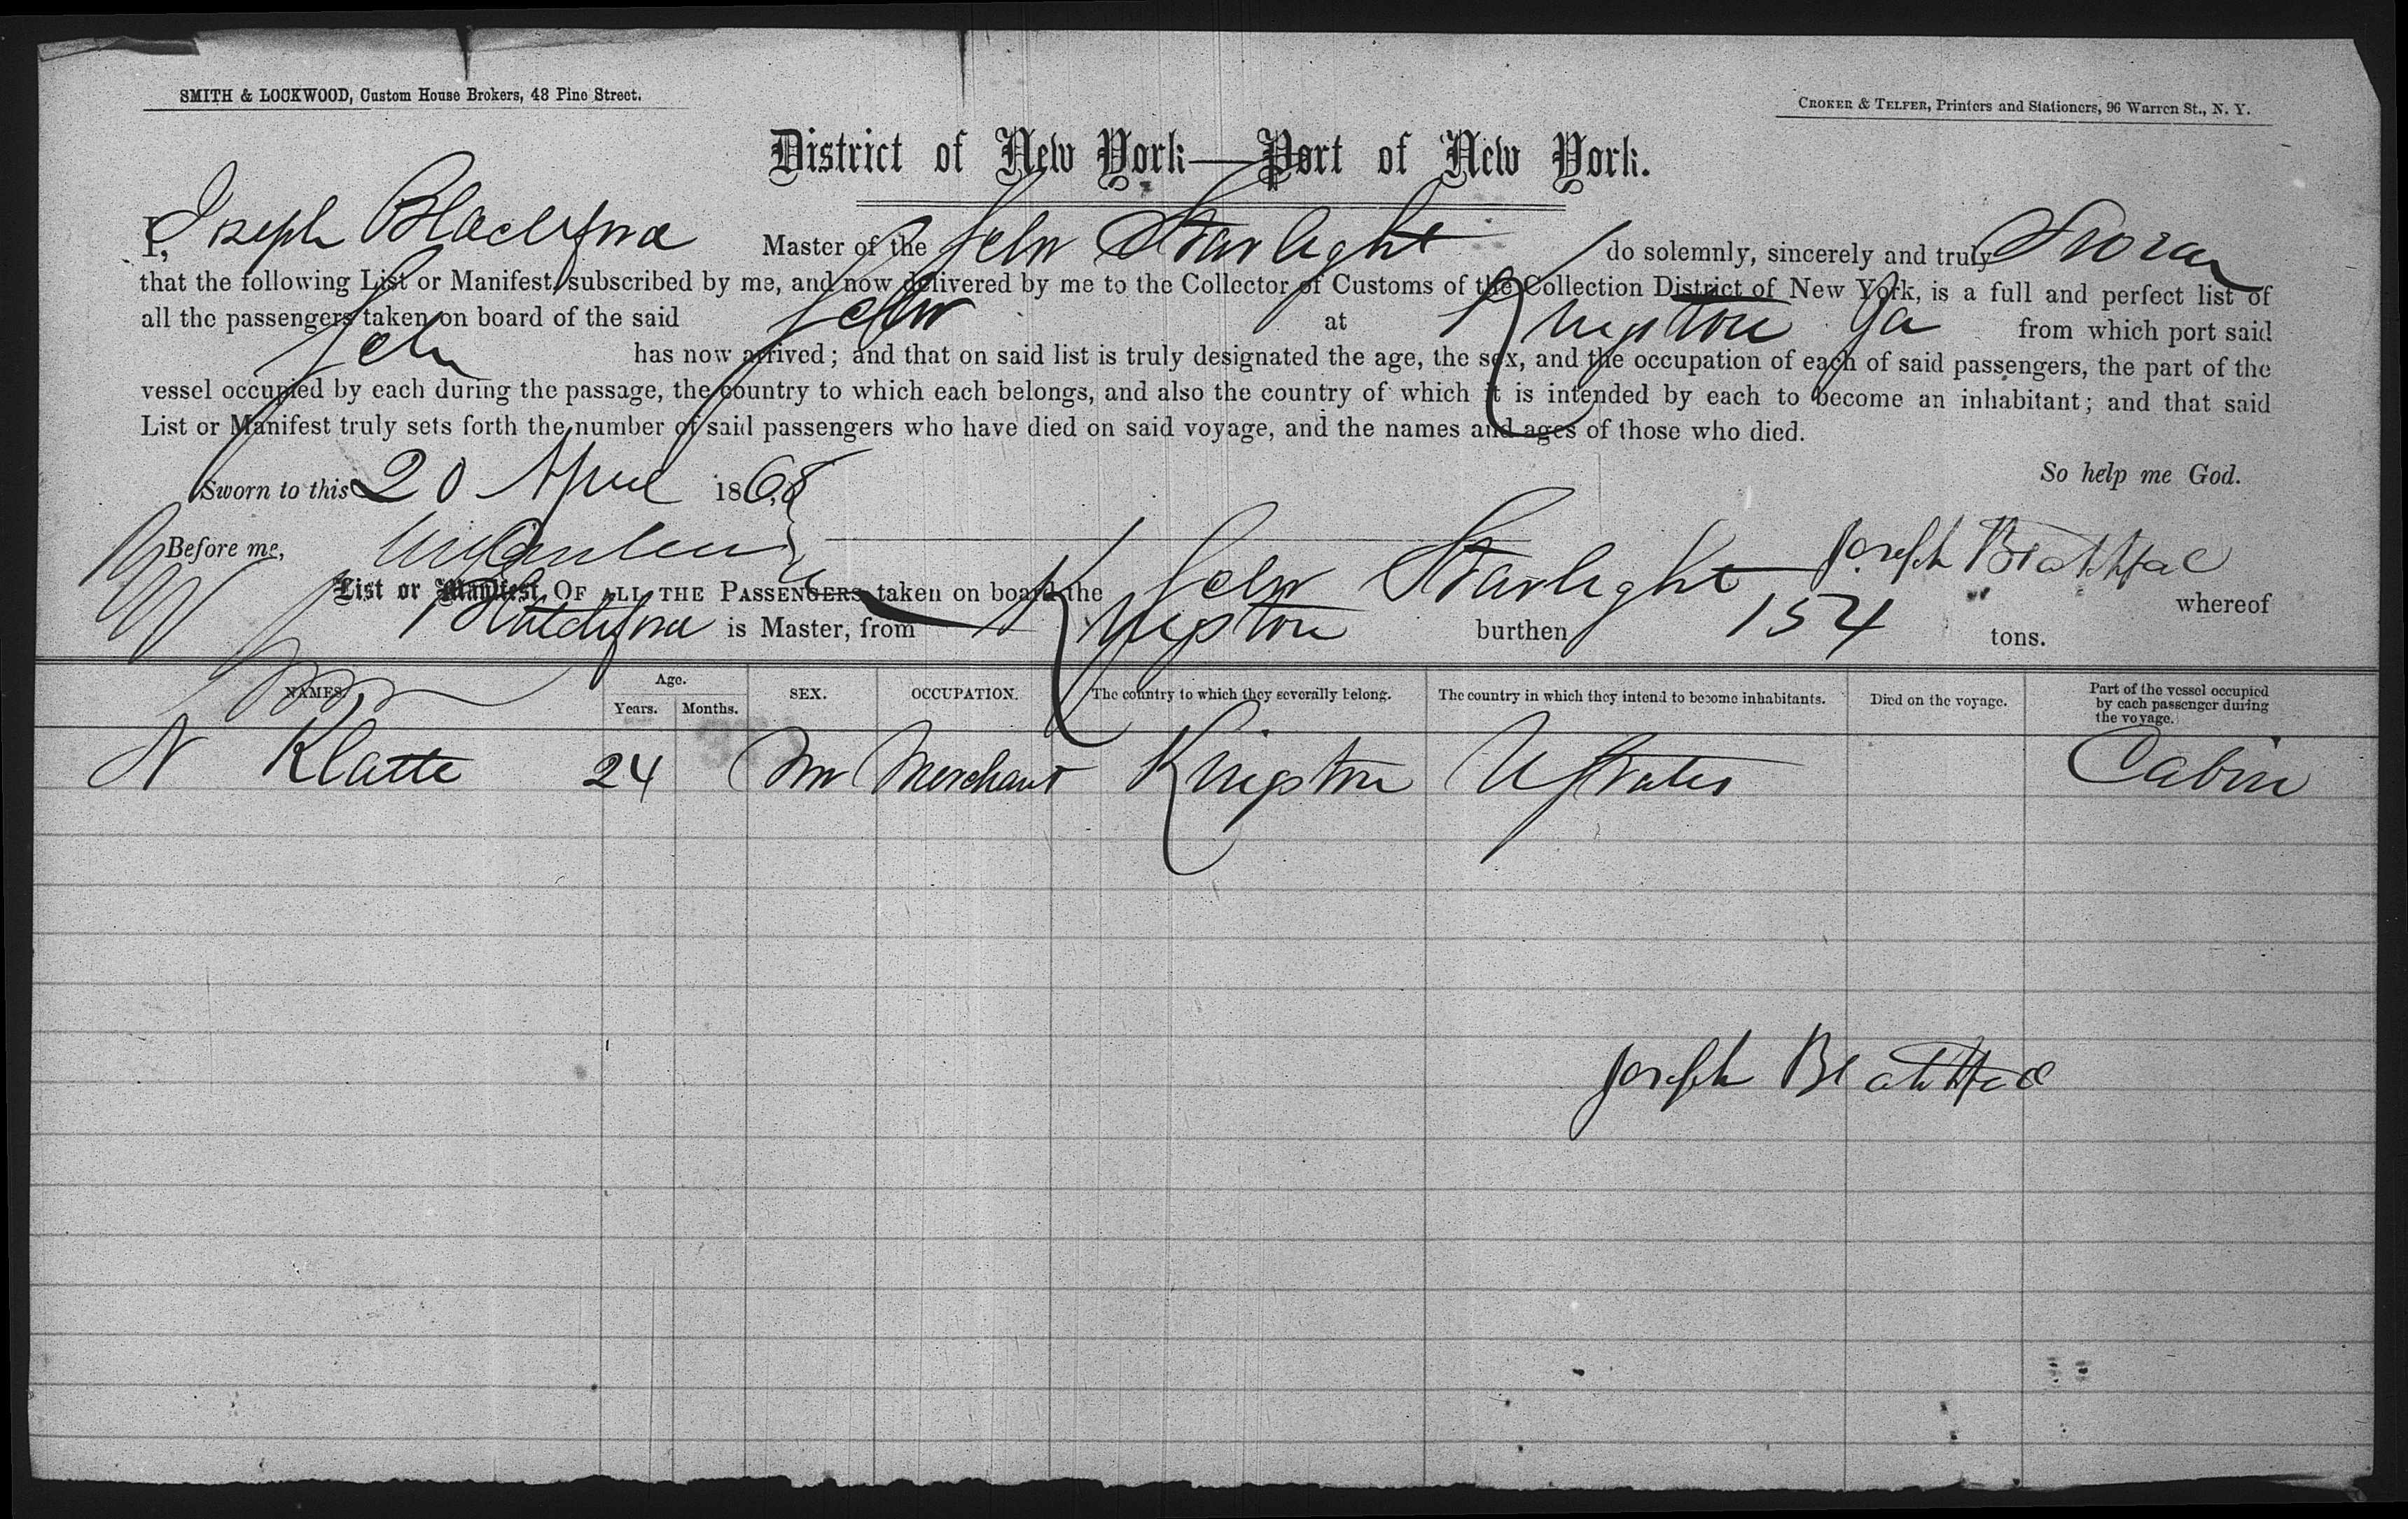 SMITH & LOCKWOOD, Custom House Brokers, 48 Pine Street.
CROKER & TELFER, Printers and Stationers, 96 Warren St., N. Y.
District of New York—Port of New York.
I, Joseph Master of the Schr Starlight do solemnly, sincerely and truly Swear
that the following List or Manifest, subscribed by me, and now delivered by me to the Collector of Customs of the Collection District of New York, is a full and perfect list of
all the passengers taken on board of the said Schr at Kingston Ja from which port said
Schr has now arrived; and that on said list is truly designated the age, the sex, and the occupation of each of said passengers, the part of the
vessel occupied by each during the passage, the country to which each belongs, and also the country of which it is intended by each to become an inhabitant; and that said
List or Manifest truly sets forth the number of said passengers who have died on said voyage, and the names and ages of those who died.
So help me God.
Sworn to this 20 April 1868
Before me, Joseph
List or Manifest, OF ALL THE PASSENGERS taken on board the Schr Starlight whereof
is Master, from Kingston burthen 154 tons.
NAMES. Age. Years. Months. SEX. OCCUPATION. The country to which they severally belong. The country in which they intend to become inhabitants. Died on the voyage. Part of the vessel occupied by each passenger during the voyage.
N Klatte 24 m Merchant Kingston U States Cabin
Joseph